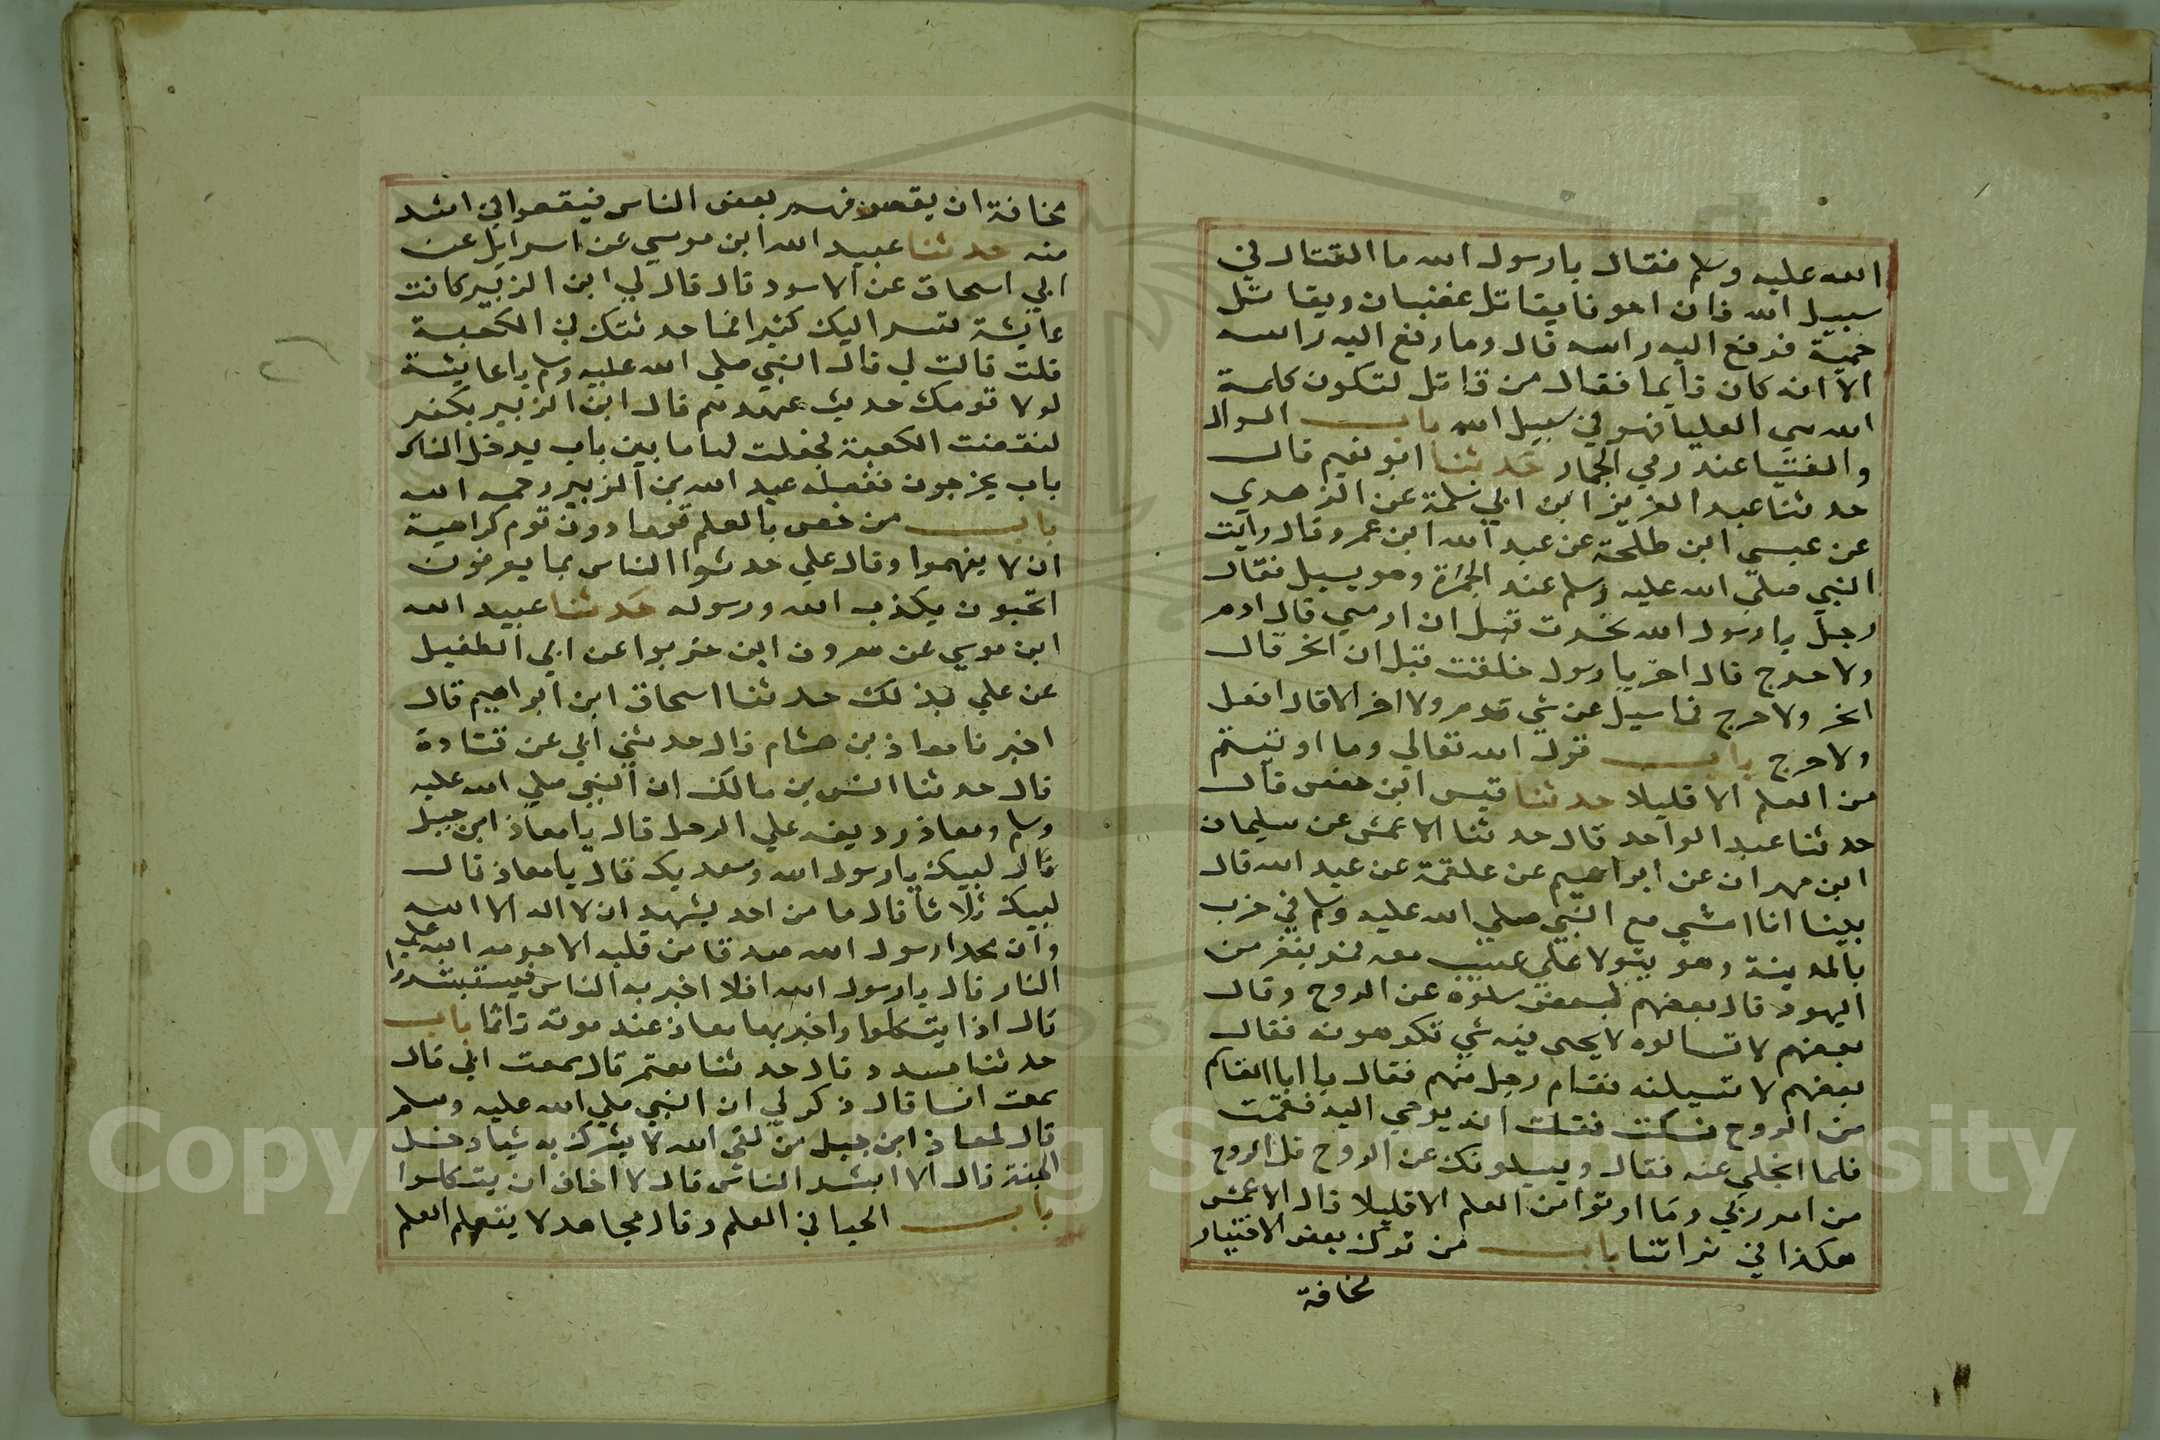 الله عليه وسلم فقال يا رسول الله ما القتال في
سبيل الله فان احدنا يقاتل غضبان ويقاتل
حمية فرفع اليه راسه قال وما رفع اليه راسه
الا انه كان قايما فقال من قاتل لتكون كلمة
الله هي العليا فهو في سبيل الله باب السوال
والفتيا عند رمي الجمار حدثنا ابو نعيم قال
حدثنا عبد العزيز ابن ابي سلمة عن الزهدي
عن عيسي ابن طلحة عن عبد الله ابن عمرو قال رايت
النبي صلي الله عليه وسلم عند الجمرة وهو يسيل فقال
رجل يا رسول الله نحرت قبل ان ارمي قال ارم
ولا حرج قال اخر يا رسول حلقت قبل ان انحر قال
انحر ولا حرج فما سيل عن شي قدم ولا اخر الا قال افعل
ولا حرج باب قول الله تعالي وما اوتيتم
من العلم الا قليلا حدثنا قيس ابن حفص قال
حدثنا عبد الواحد قال حدثنا الاعمش عن سليمان
ابن مهران عن ابراهيم عن علقمة عن عبد الله قال
بينا انا امشي مع النبي صلي الله عليه وسلم في خرب
بالمدينة وهو يتولا علي عسيب معه فمر بنفر من
اليهود قال بعضهم لبعض سلوه عن الروح وقال
بعضهم لا تسالوه لا يجي فيه شي تكرهونه فقال
بعضهم لا تسيلنه فقام رجل منهم فقال يا ابا القاسم
من الروح فسكت فقلت انه يوحي اليه فقمت
فلما انجلي عنه فقال ويسيلونك عن الروح قل الروح
من امر ربي وما اوتوا من العلم الا قليلا قال الاعمش
هكذا في قراتنا باب من ترك بعض الاختيار
مخافة
مخافة ان يقصر فهم بعض الناس فيقعوا في اشد
منه حدثنا عبيد الله ابن موسي عن اسرايل عن
ابي اسحاق عن الاسود قال قال لي ابن الزبير كانت
عايشة تسر اليك كثيرا فما حدثتك في الكعبة
قلت قالت لي قال النبي صلي الله عليه وسلم يا عايشة
لولا قومك حديث عهدهم قال ابن الزبير بكفر
لنقضت الكعبة فجعلت لها ما بين باب يدخل الناس
باب يخرجون ففعله عبد الله بن الزبير رحمه الله
باب من خص بالعلم قوما دون قوم كراهية
ان لا يفهموا وقال علي حدثوا الناس بما يعرفون
اتحبون يكذب الله ورسوله حدثنا عبيد الله
ابن موسي عن معروف ابن خربوا عن ابي الطفيل
عن علي بذلك حدثنا اسحاق ابن ابراهيم قال
اخبرنا معاذ بن هشام قال حدثني ابي عن قتادة
قال حدثنا انس بن مالك ان النبي صلي الله عليه
وسلم ومعاذ رديفه علي الرحل قال يا معاذ ابن جبل
قال لبيك يا رسول الله وسعديك قال يا معاذ قال
لبيك ثلاثا قال ما من احد يشهد ان لا اله الا الله
وان محمدا رسول الله صدقا من قلبه الا حرمه الله علي
النار قال يا رسول الله افلا اخبر به الناس فيستبشروا
قال اذا يتكلوا واخبر بها معاذ عند موته تاثما باب
حدثنا مسدد قال حدثنا معتمر قال سمعت ابي قال
سمعت انسا قال ذكر لي ان النبي صلي الله عليه وسلم
قال لمعاذ ابن جبل من لقي الله لا يشرك به شيا دخل
الجنة قال الا ابشر الناس قال لا اخاف ان يتكلوا
باب الحيا في العلم وقال مجاهد لا يتعلم العلم